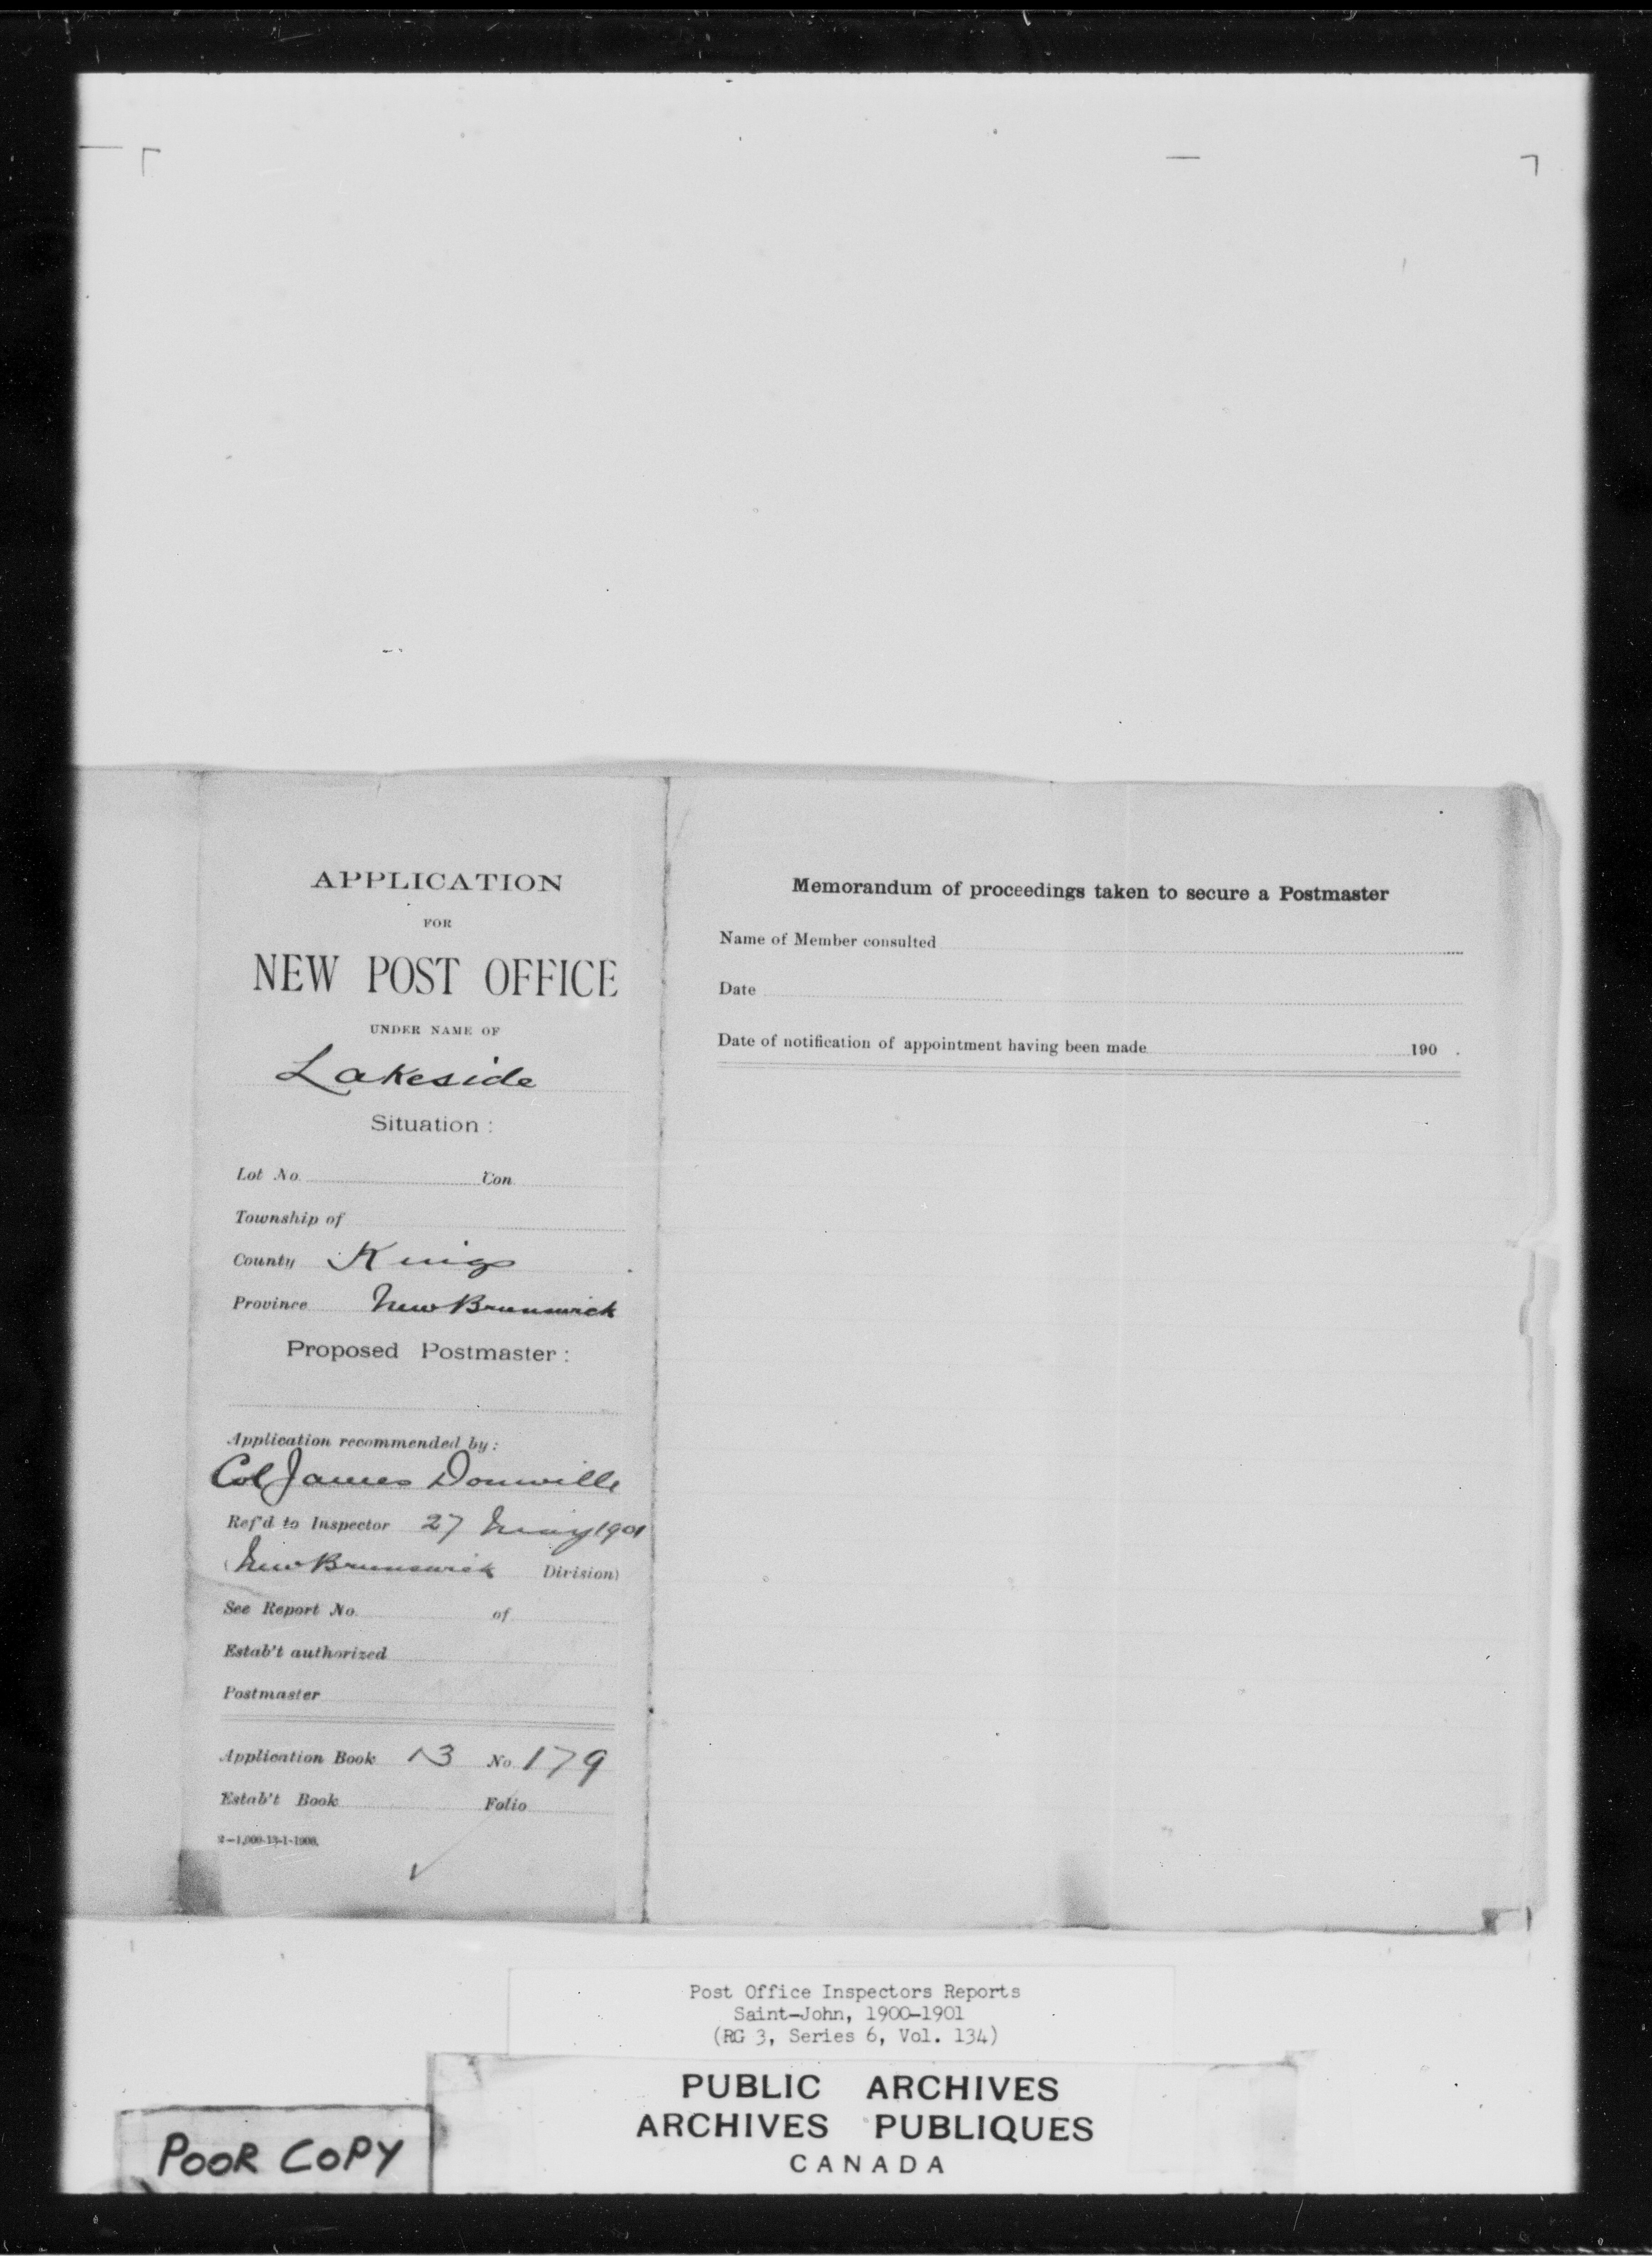 APPLICATION
FOR
NEW POST OFFICE
UNDER NAME OF
Lakeside
Situation :
Lot No. Con.
Township of
County Kings
Province New Brunswick
Proposed Postmaster :
Application recommended by :
Col James Domville
Ref'd to Inspector 27 May 1901
(New Brunswick Division)
See Report No. of
Estab't authorized
Postmaster
Application Book 13 No. 179
Estab't Book Folio
2—1,000-13-1-1900.
Memorandum of proceedings taken to secure a Postmaster
Name of Member consulted
Date
Date of notification of appointment having been made 190 .
Post Office Inspectors Reports
Saint-John, 1900-1901
(RG 3, Series 6, Vol. 134)
PUBLIC ARCHIVES
ARCHIVES PUBLIQUES
CANADA
POOR COPY